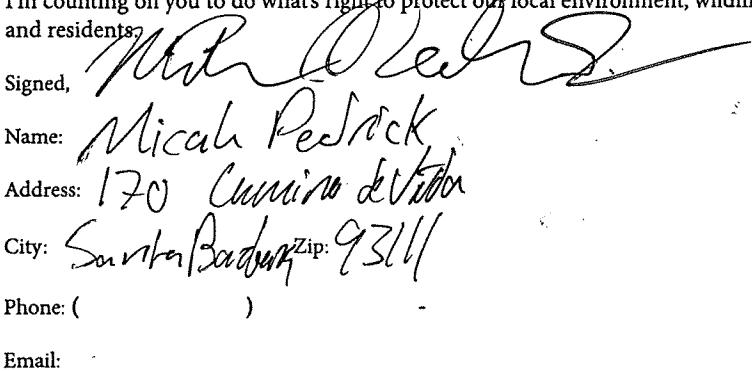 I'm counting on you to do what's right to protect our local environment, wildli
and residents.
Signed,
Name: Micah Pedrick
Address: 170 Camino de Vida
City: Santa Barbara Zip: 93111
Phone: ( ) -
Email: